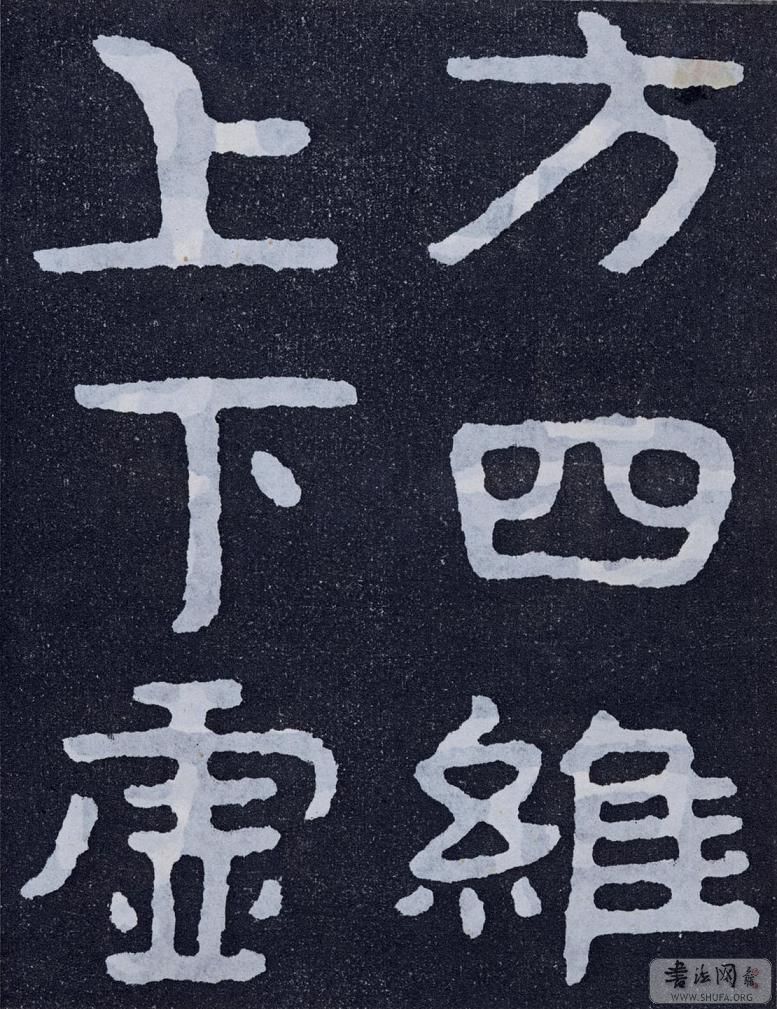 方四維
上下虛
書法网
WWW.SHUFA.ORG